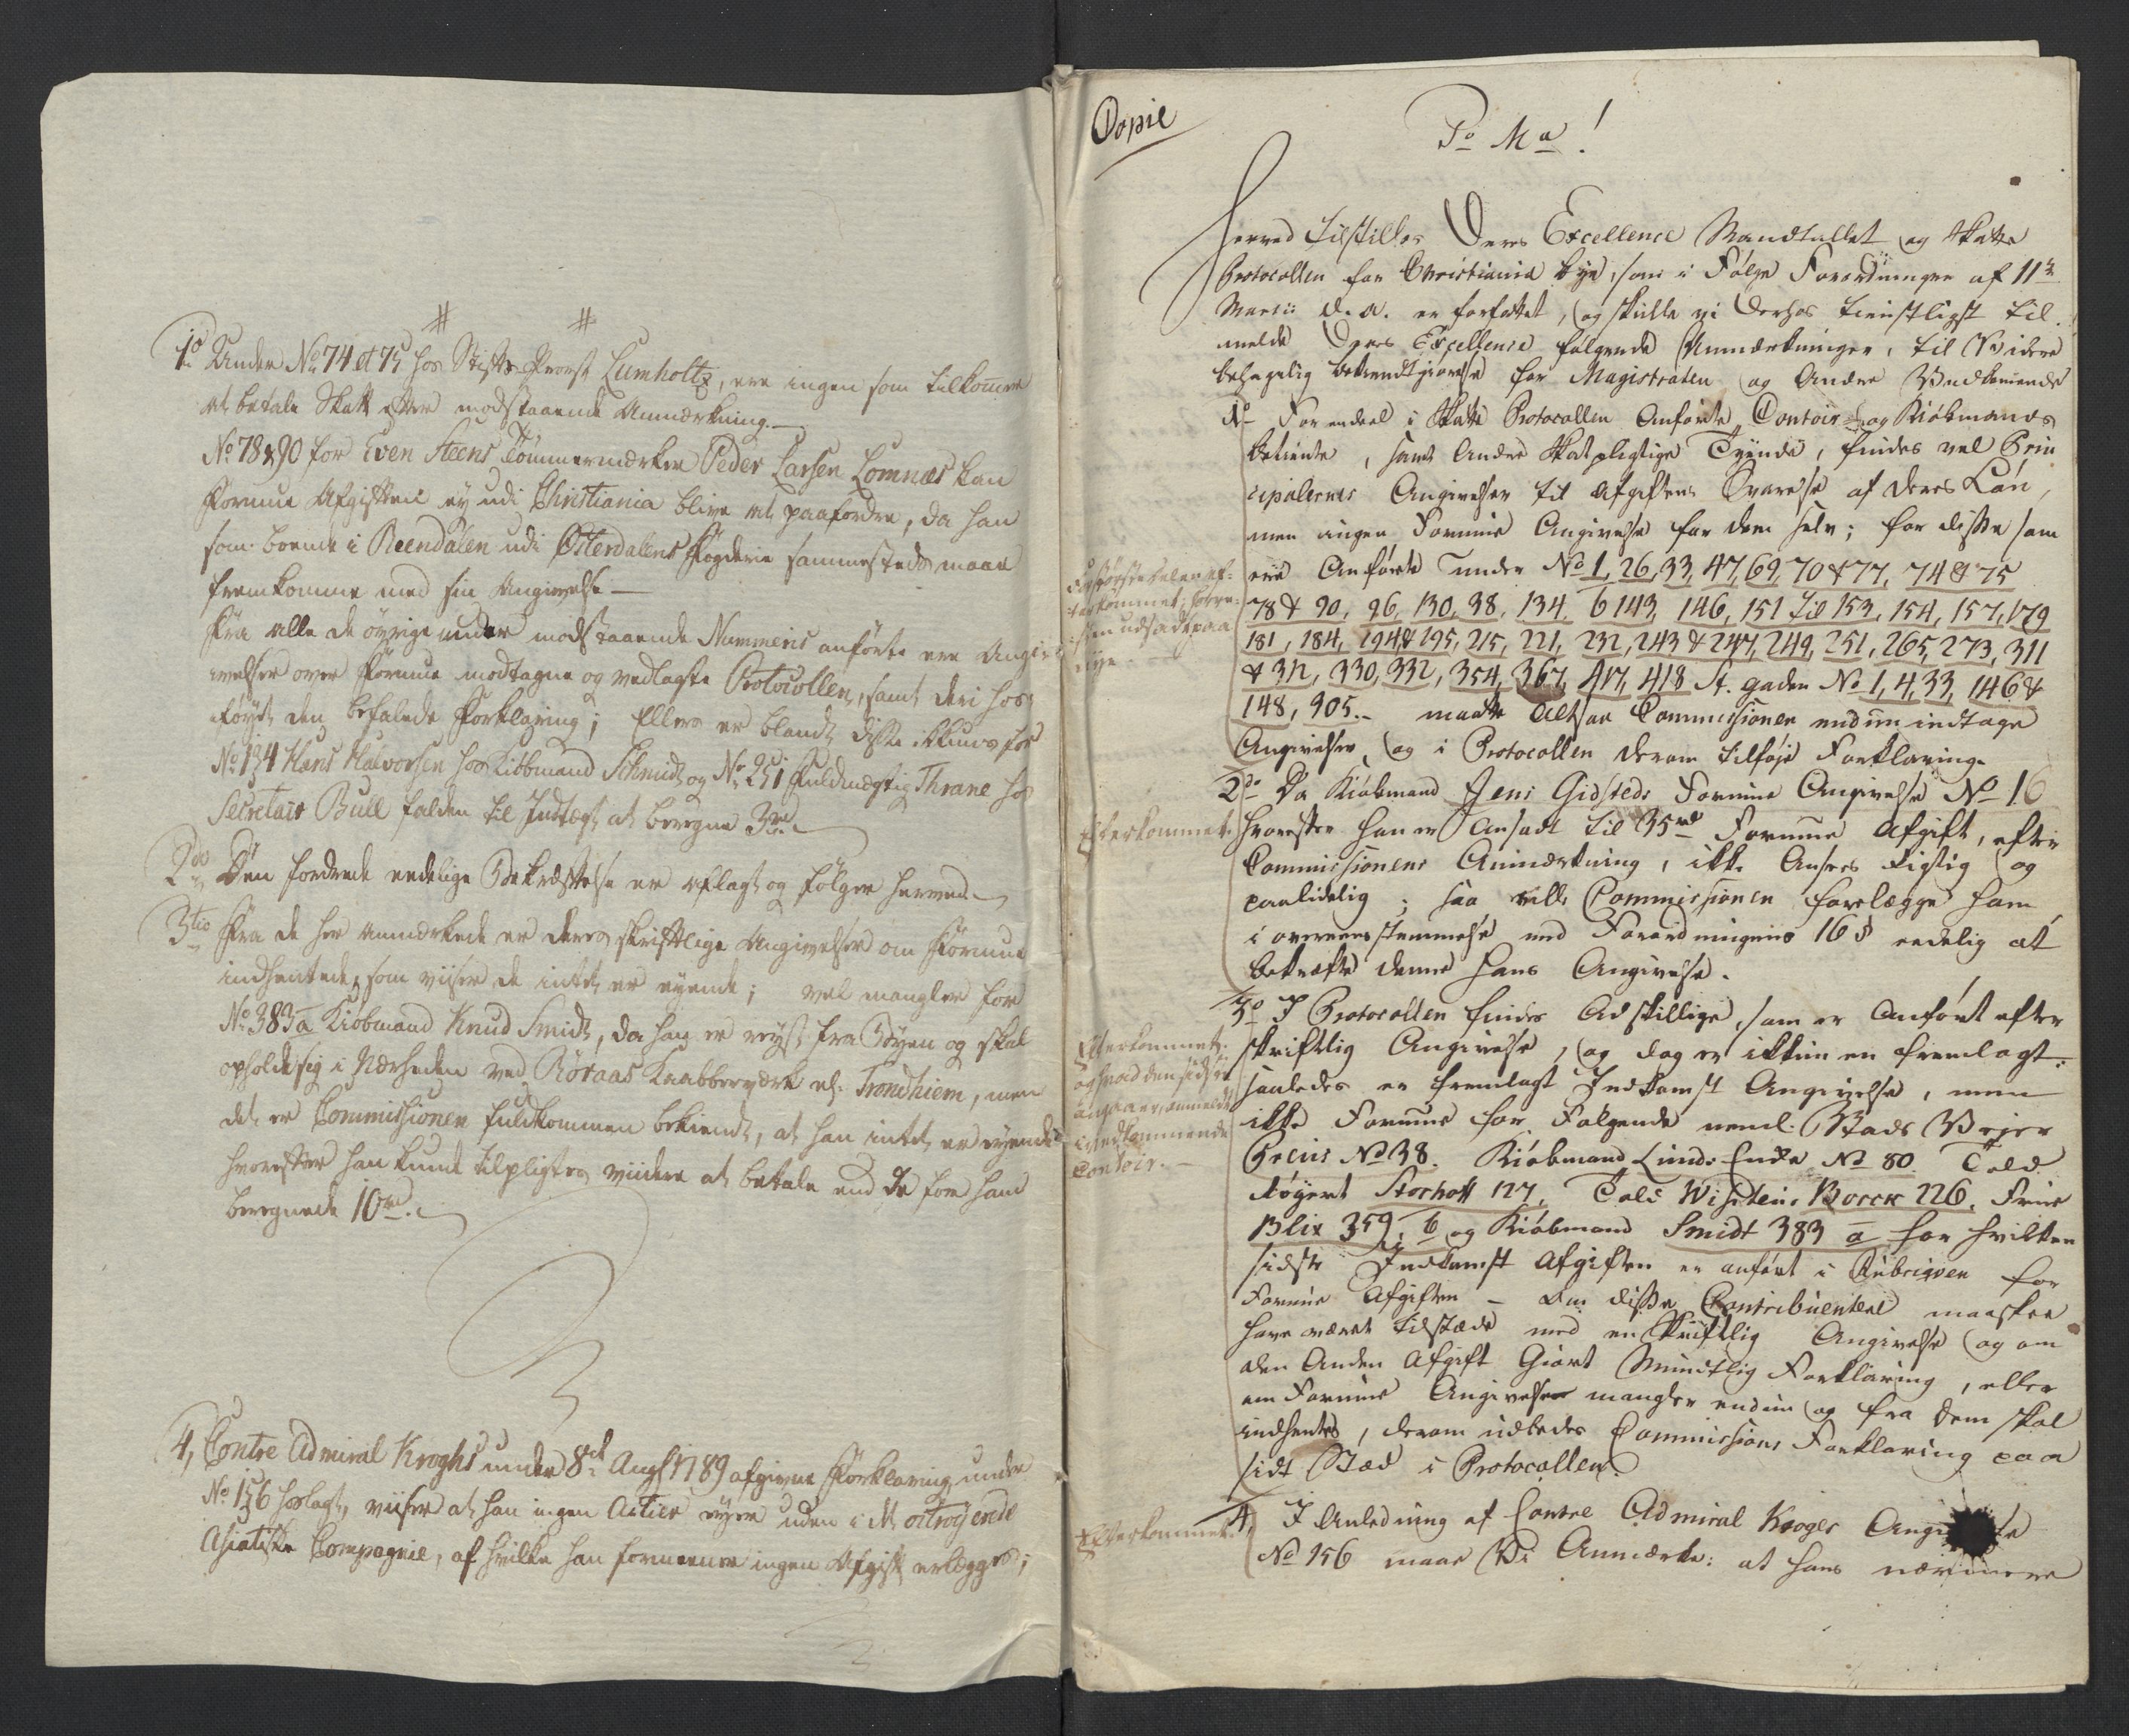 # #
1o Under No 74 et 75 hos Stifts Provst Lumholtz, ere ingen som tilkomme
at betale Skatt efter modstaaende Anmærkning.
No 78 & 90 for Even Steens Tömmermærker Peder Larsen Lomnæs kan
Formue Afgiften ey udi Christiania blive at paafordre, da han
som boende i Reendalen udi Österdalens Fögderie sammesteds maae
fremkomme med sin Angivelse
Fra alle de övrige under modstaaende Nummeris anförte ere Angi-
velser over Formue modtagne og vedlagte Protocollen, samt deri hos-
föyet den befalede Forklaring; Ellers er blandt disse ikkuns for
No 134 Hans Halvorsen hos Kiöbmand Schmidt og No 251 Fuldmægtig Thrane hos
Secretair Bull falden til Indtægt at beregne 3 rd.
2do Den fordrede eedelige Bekræftelse er aflagt og fölger herved.
3tio Fra de her anmærkede er deres skriftlige Angivelser om Formue
indhentede, som viiser de intet er eyende; vel mangler for
No 383 a Kiöbmand Knud Smidt, da han er reyst fra Byen og skal
opholde sig i Nærheden ved Röraas Kaabberværk el: Trondhiem, men
det er Commissionen fuldkommen bekiendt, at han intet er eyende
hvorefter han kunde tilpligtes viidere at betale end de for ham
beregnede 10 rd.
4, Contre Admiral Kroghs under 8de Aug 1789 afgivne Forklaring under
No 156 henlagt, viiser at han ingen Actier eyer uden i det octroyerede
Asiatiske Compagnie, af hvilke han formeener ingen Afgift erlægges;
Copie
Po Ma!
Herved tilstilles Deres Excellence Mandtallet og Skatte
Protocollen for Christiania Bye, som i Fölge Forordningen af 11te
Martii d. a. er forfattet, og skulle vi derhos tienstligst til-
melde Deres Excellence fölgende Anmærkninger, til Videre
behagelig bekiendtgiörelse for Magistraten og Andre Vedkommende
1o For endeel i Skatte Protocollen Anförte Contoir og Kiöbmands
betiente, samt Andre Skatpligtige Tyende, findes vel Prin
cipalernes Angivelser til Afgiftens Svarelse af deres Lön,
men ingen Formue Angivelse for dem selv; for disse som
ere Anförte under No 1, 26, 33, 47, 69, 70 & 77, 74 & 75
78 & 90, 96, 130, 38, 134, 6 143, 146, 151 til 153, 154, 157, 179
181, 184, 194 & 195, 215, 221, 232, 243 & 247, 249, 251, 265, 273, 311
& 312, 330, 332, 354, 367, 417, 418 St. gaden No 1, 4, 33, 146 &
148, 905. maatte Altsaa Commissionen endnu indtage
Angivelser, og i Protocollen derom tilföje Forklaring.
2do Da Kiöbmand Jens Gidsteds Formue Angivelse No 16
hvorefter han er Ansadt til 35 rd Formue Afgift, efter
Commissionens Anmærkning, ikke Ansees rigtig og
paalidelig; saa ville Commissionen forelægge ham
i overeensstemmelse med Forordningens 16 § eedelig at
bekræfte denne hans Angivelse.
3o I Protocollen findes Adskillige, som er Anfört efter
skriftlig Angivelse, og dog er ikkun en fremlagt:
saaledes er fremlagt Indkomst Angivelse, men
ikke Formue for Fölgende neml. Stads Vejer
Greiis No 38. Kiöbmand Linds Enke No 80. Told
Röygert Storhoff 127, Told Visiteur Borck 226, Frue
Blix 359, b og Kiöbmand Smidt 383 a for hvilken
sidste Indkomst Afgiften er anfört i Rubriqven for
Formue Afgiften - Om disse Contribuentere maaskee
have været tilstæde med en Skriftlig Angivelse og om
den Anden Afgift Giort Mundtlig Forklaring, eller
om Formue Angivelser mangler endnu og fra dem skal
indhentes, derom udbedes Commissions Forklaring paa
sidt Stæd i Protocollen.
4, I Anledning af Contre Admiral Kroger Angi
No 156 maae Vi Anmærke: at hans nærmere
Efterkommet.
Efterkommet.
og hvad den sidste
angaaer, anmeldt
vedkommende
Contoir.
Efterkommet.